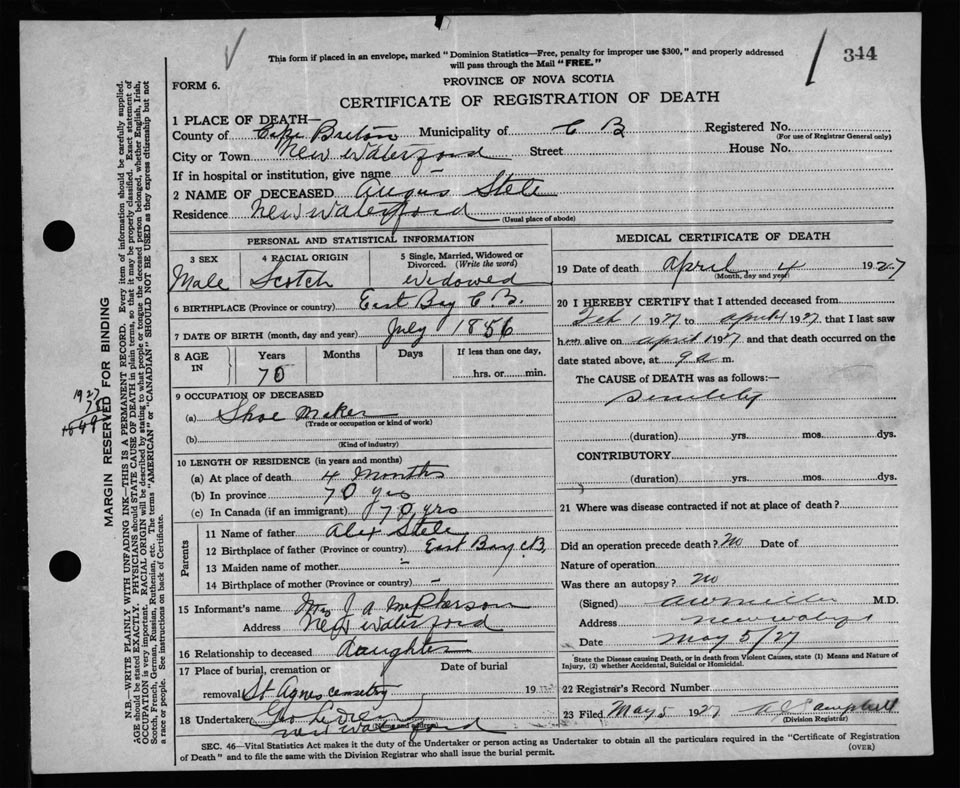 This form if placed in an envelope, marked "Dominion Statistics—Free, penalty for improper use $300," and properly addressed
will pass through the Mail "FREE."
344
FORM 6.
PROVINCE OF NOVA SCOTIA
CERTIFICATE OF REGISTRATION OF DEATH
1 PLACE OF DEATH—
County of Cape Breton Municipality of C B Registered No.
(For use of Registrar General only)
City or Town New Waterford Street House No.
If in hospital or institution, give name —
2 NAME OF DECEASED Angus Stele
Residence New Waterford
(Usual place of abode)
PERSONAL AND STATISTICAL INFORMATION
3 SEX 4 RACIAL ORIGIN 5 Single, Married, Widowed or
Divorced. (Write the word)
Male Scotch Widowed
6 BIRTHPLACE (Province or country) East Bay C.B.
7 DATE OF BIRTH (month, day and year) July 1856
8 AGE IN Years Months Days If less than one day,
70 hrs. or min.
9 OCCUPATION OF DECEASED
(a) Shoe Maker
(Trade or occupation or kind of work)
(b)
(Kind of industry)
10 LENGTH OF RESIDENCE (in years and months)
(a) At place of death 4 Months
(b) In province 70 yrs
(c) In Canada (if an immigrant) 70 yrs
Parents
11 Name of father Alex Stele
12 Birthplace of father (Province or country) East Bay C.B.
13 Maiden name of mother –
14 Birthplace of mother (Province or country) –
15 Informant's name Mrs J A McPherson
Address New Waterford
16 Relationship to deceased Daughter
17 Place of burial, cremation or Date of burial
removal St Agnes Cemetry 19
18 Undertaker Geo
(Name and address)
New Waterford
MEDICAL CERTIFICATE OF DEATH
19 Date of death April 4 1927
(Month, day and year)
20 I HEREBY CERTIFY that I attended deceased from
Feb 1 1927 to April 1 1927, that I last saw
him alive on April 1 1927 and that death occurred on the
date stated above, at 9 a m.
The CAUSE of DEATH was as follows:—
Senility
(duration) yrs. mos. dys.
CONTRIBUTORY
(duration) yrs. mos. dys.
21 Where was disease contracted if not at place of death?
Did an operation precede death? No Date of
Nature of operation
Was there an autopsy? no
(Signed) M.D.
Address
Date May 5/27
State the Disease causing Death, or in death from Violent Causes, state (1) Means and Nature of
Injury, (2) whether Accidental, Suicidal or Homicidal.
22 Registrar's Record Number
23 Filed May 5 1927 Campbell
(Division Registrar)
SEC. 46—Vital Statistics Act makes it the duty of the Undertaker or person acting as Undertaker to obtain all the particulars required in the "Certificate of Registration
of Death" and to file the same with the Division Registrar who shall issue the burial permit.
(OVER)
MARGIN RESERVED FOR BINDING
N.B.—WRITE PLAINLY WITH UNFADING INK—THIS IS A PERMANENT RECORD. Every item of information should be carefully supplied.
AGE should be stated EXACTLY. PHYSICIANS should STATE CAUSE OF DEATH in plain terms, so that it may be properly classified. Exact statement of
OCCUPATION is very important. RACIAL ORIGIN will be described by stating to what people or tongue the deceased person belonged, whether English, Irish,
Scotch, French, German, Russian, Ruthenian, etc. The terms "AMERICAN" or "CANADIAN" SHOULD NOT BE USED as they express citizenship but not
a race or people. See instructions on back of Certificate.
1927